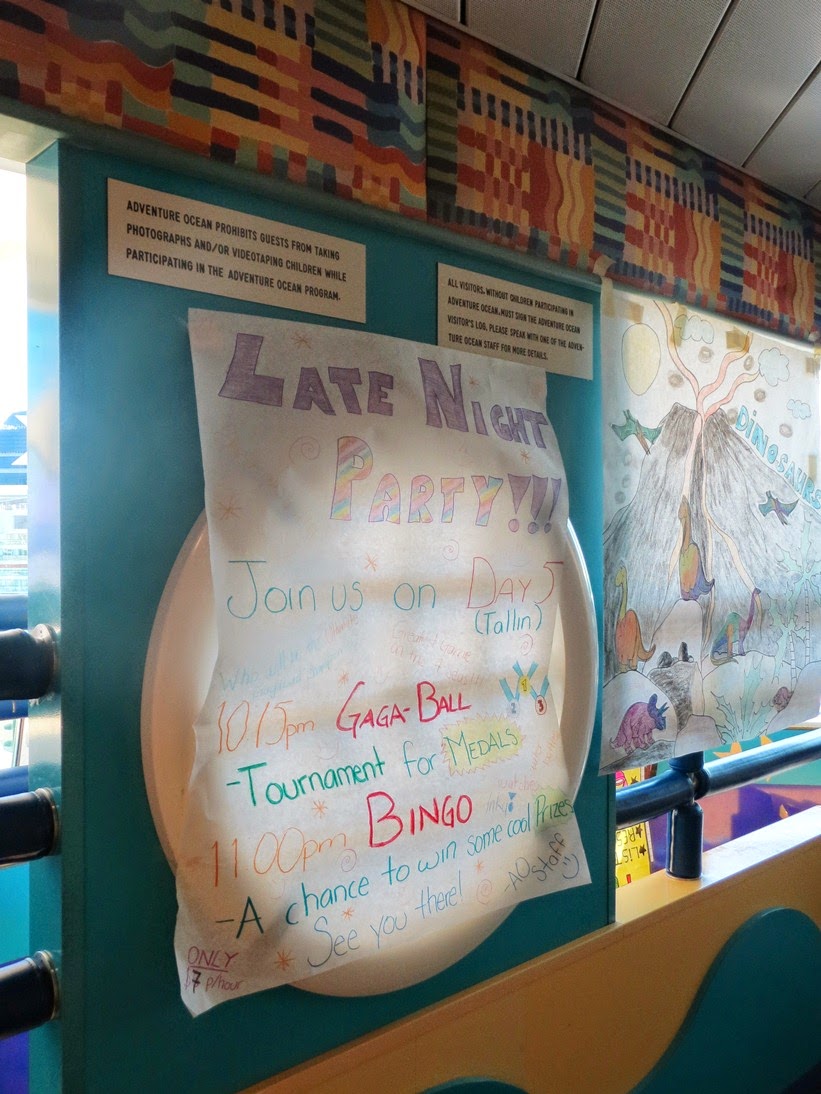 ADVENTURE OCEAN PROHIBITS GUESTS FROM TAKING
PHOTOGRAPHS AND/OR VIDEOTAPING CHILDREN WHILE
PARTICIPATING IN THE ADVENTURE OCEAN PROGRAM.
ALL VISITORS, WITHOUT CHILDREN PARTICIPATING IN
ADVENTURE OCEAN, MUST SIGN THE ADVENTURE OCEAN
VISITOR'S LOG. PLEASE SPEAK WITH ONE OF THE ADVEN-
TURE OCEAN STAFF FOR MORE DETAILS.
LATE NIGHT
PARTY!!!
Join us on DAY 5
(Tallin)
10:15pm GAGA-BALL
-Tournament for MEDALS
11:00pm BINGO
-A chance to win some cool Prizes
See you there!
-AO Staff :)
ONLY
$7 p/hour
DINOSAURS
LIST